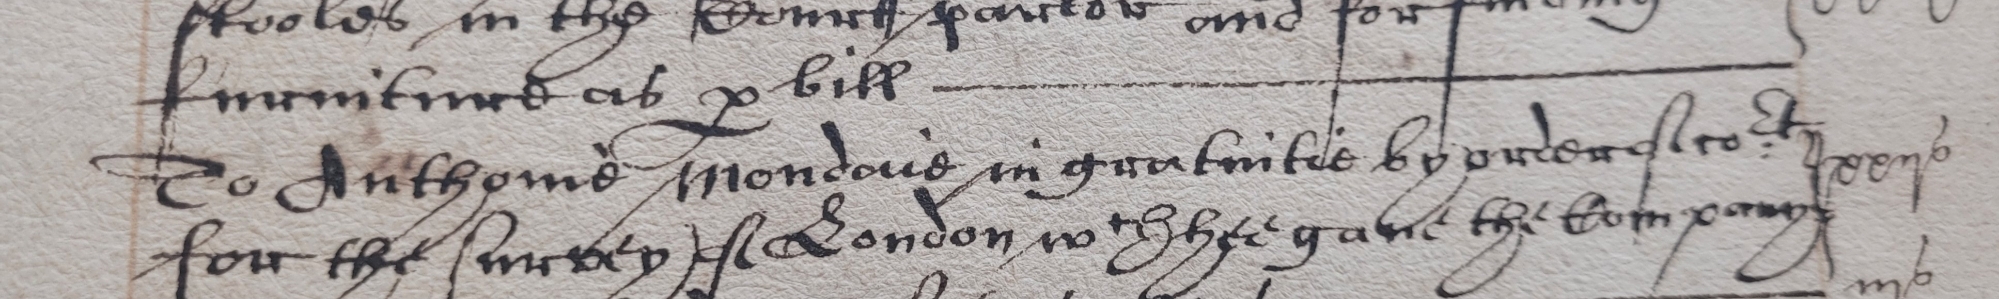 stooles in the Court parlor and for
furniture as p bill
To Anthonie Mondaie in gratuitie by order of co:rt xxxs
for the survey of London wch hee gave the Company